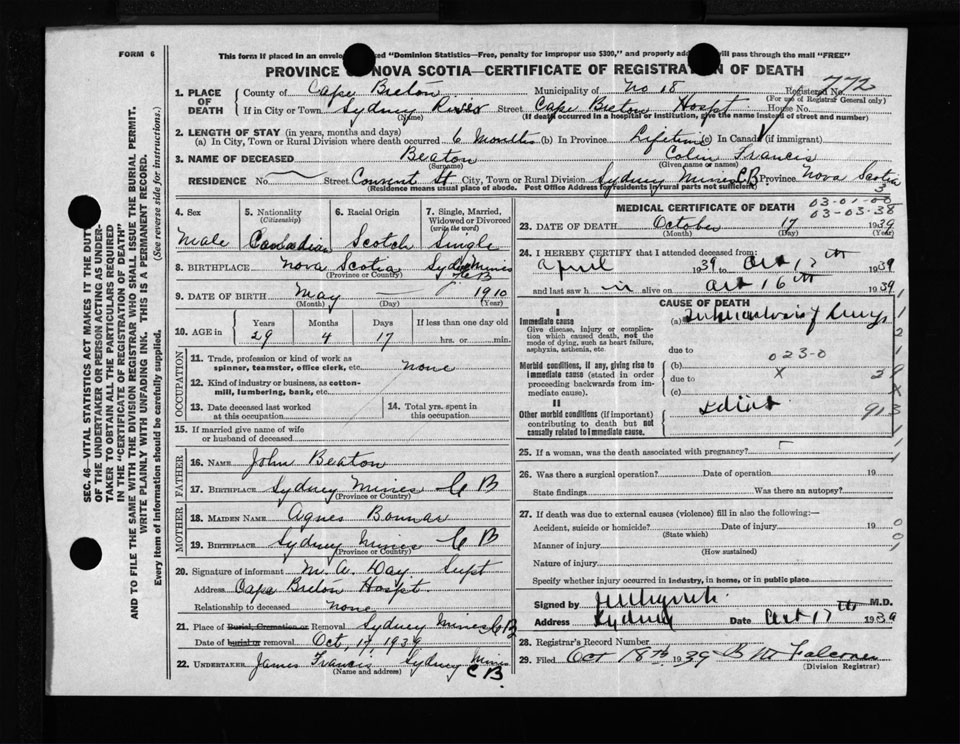 FORM 6
This form if placed in an envelope "Dominion Statistics—Free, penalty for improper use $300," and properly will pass through the mail "FREE"
PROVINCE OF NOVA SCOTIA—CERTIFICATE OF REGISTRATION OF DEATH
1. PLACE OF DEATH
County of Cape Breton Municipality of No 18 Registered No. 772
(For use of Registrar General only)
If in City or Town Sydney River Street Cape Breton Hospt House No.
(Name) (If death occurred in a hospital or institution, give the name instead of street and number)
2. LENGTH OF STAY (in years, months and days)
(a) In City, Town or Rural Division where death occurred 6 months (b) In Province Lifetime (c) In Canada (if immigrant)
3. NAME OF DECEASED Beaton Colin Francis
(Surname) (Given name or names)
RESIDENCE No Street Convent St City, Town or Rural Division Sydney Mines C.B. Province Nova Scotia
(Residence means usual place of abode. Post Office Address for residents in rural parts not sufficient)
3
4. Sex
Male
5. Nationality (Citizenship)
Canadian
6. Racial Origin
Scotch
7. Single, Married, Widowed or Divorced (write the word)
Single
8. BIRTHPLACE Nova Scotia Sydney Mines C B
(Province or Country)
9. DATE OF BIRTH May 1910
(Month) (Day) (Year)
10. AGE in
Years Months Days If less than one day old
29 4 17 hrs. or min.
OCCUPATION
11. Trade, profession or kind of work as spinner, teamster, office clerk, etc. none
12. Kind of industry or business, as cotton-mill, lumbering, bank, etc.
13. Date deceased last worked at this occupation
14. Total yrs. spent in this occupation
15. If married give name of wife or husband of deceased
FATHER
16. NAME John Beaton
17. BIRTHPLACE Sydney Mines C B
(Province or Country)
MOTHER
18. MAIDEN NAME Agnes Bonnar
19. BIRTHPLACE Sydney Mines C B
(Province or Country)
20. Signature of informant M. A. Day Supt
Address Cape Breton Hospt.
Relationship to deceased none
21. Place of Burial, Cremation or Removal Sydney Mines C B
Date of burial or removal Oct, 17 1939
22. UNDERTAKER James Francis Sydney Mines C B.
(Name and address)
MEDICAL CERTIFICATE OF DEATH
03-01-00
03-03-38
23. DATE OF DEATH October 17 1939
(Month) (Day) (Year)
24. I HEREBY CERTIFY that I attended deceased from:
April 1939 to Oct 17th 1939
and last saw h im alive on Oct 16th 1939
CAUSE OF DEATH
I
Immediate cause
Give disease, injury or complication which caused death, not the mode of dying, such as heart failure, asphyxia, asthenia, etc.
(a) Tuberculosis of Lungs
due to
023-0
(b)
Morbid conditions, if any, giving rise to immediate cause (stated in order proceeding backwards from immediate cause).
due to x
(c)
II
Other morbid conditions (if important) contributing to death but not causally related to immediate cause.
25. If a woman, was the death associated with pregnancy?
26. Was there a surgical operation? Date of operation 19
State findings Was there an autopsy?
27. If death was due to external causes (violence) fill in also the following:—
Accident, suicide or homicide? Date of injury 19
(State which)
Manner of injury
(How sustained)
Nature of injury
Specify whether injury occurred in industry, in home, or in public place
Signed by M.D.
Address Sydney Date Oct 17th 1939
28. Registrar's Record Number
29. Filed Oct 18th 1939 Falconer
(Division Registrar)
SEC. 46—VITAL STATISTICS ACT MAKES IT THE DUTY
OF THE UNDERTAKER OR PERSON ACTING AS UNDER-
TAKER TO OBTAIN ALL THE PARTICULARS REQUIRED
IN THE "CERTIFICATE OF REGISTRATION OF DEATH"
AND TO FILE THE SAME WITH THE DIVISION REGISTRAR WHO SHALL ISSUE THE BURIAL PERMIT.
WRITE PLAINLY WITH UNFADING INK. THIS IS A PERMANENT RECORD.
Every item of information should be carefully supplied. (See reverse side for instructions.)